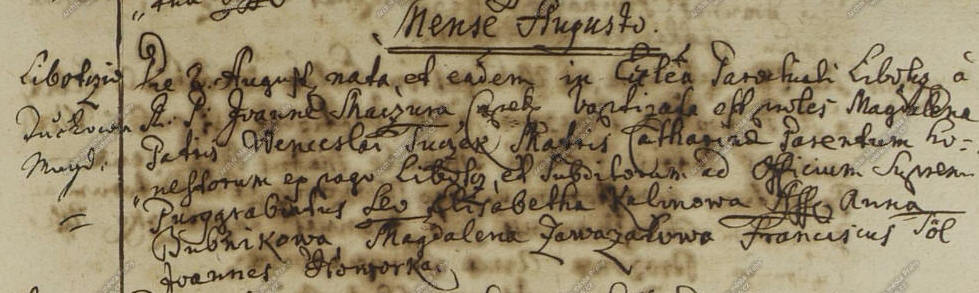 Mense Augusto.
Libotzio Die 2 August nata et eadem in Ecclea Parochiali Libotz à
Tučkowa A. P. Joanne Maczura, baptizata est proles Magdalena
Magd: Patris Wenceslai Tuczek Matris Catharinae Parentum ho-
nestorum ex pago Libotz, et Subditorum ad Officium Supremi
Purggrabiatus Levo Elisabetha Kalinowa Anna
Dubnikowa, Magdalena Zawazalowa Franciscus Pöl
Joannes